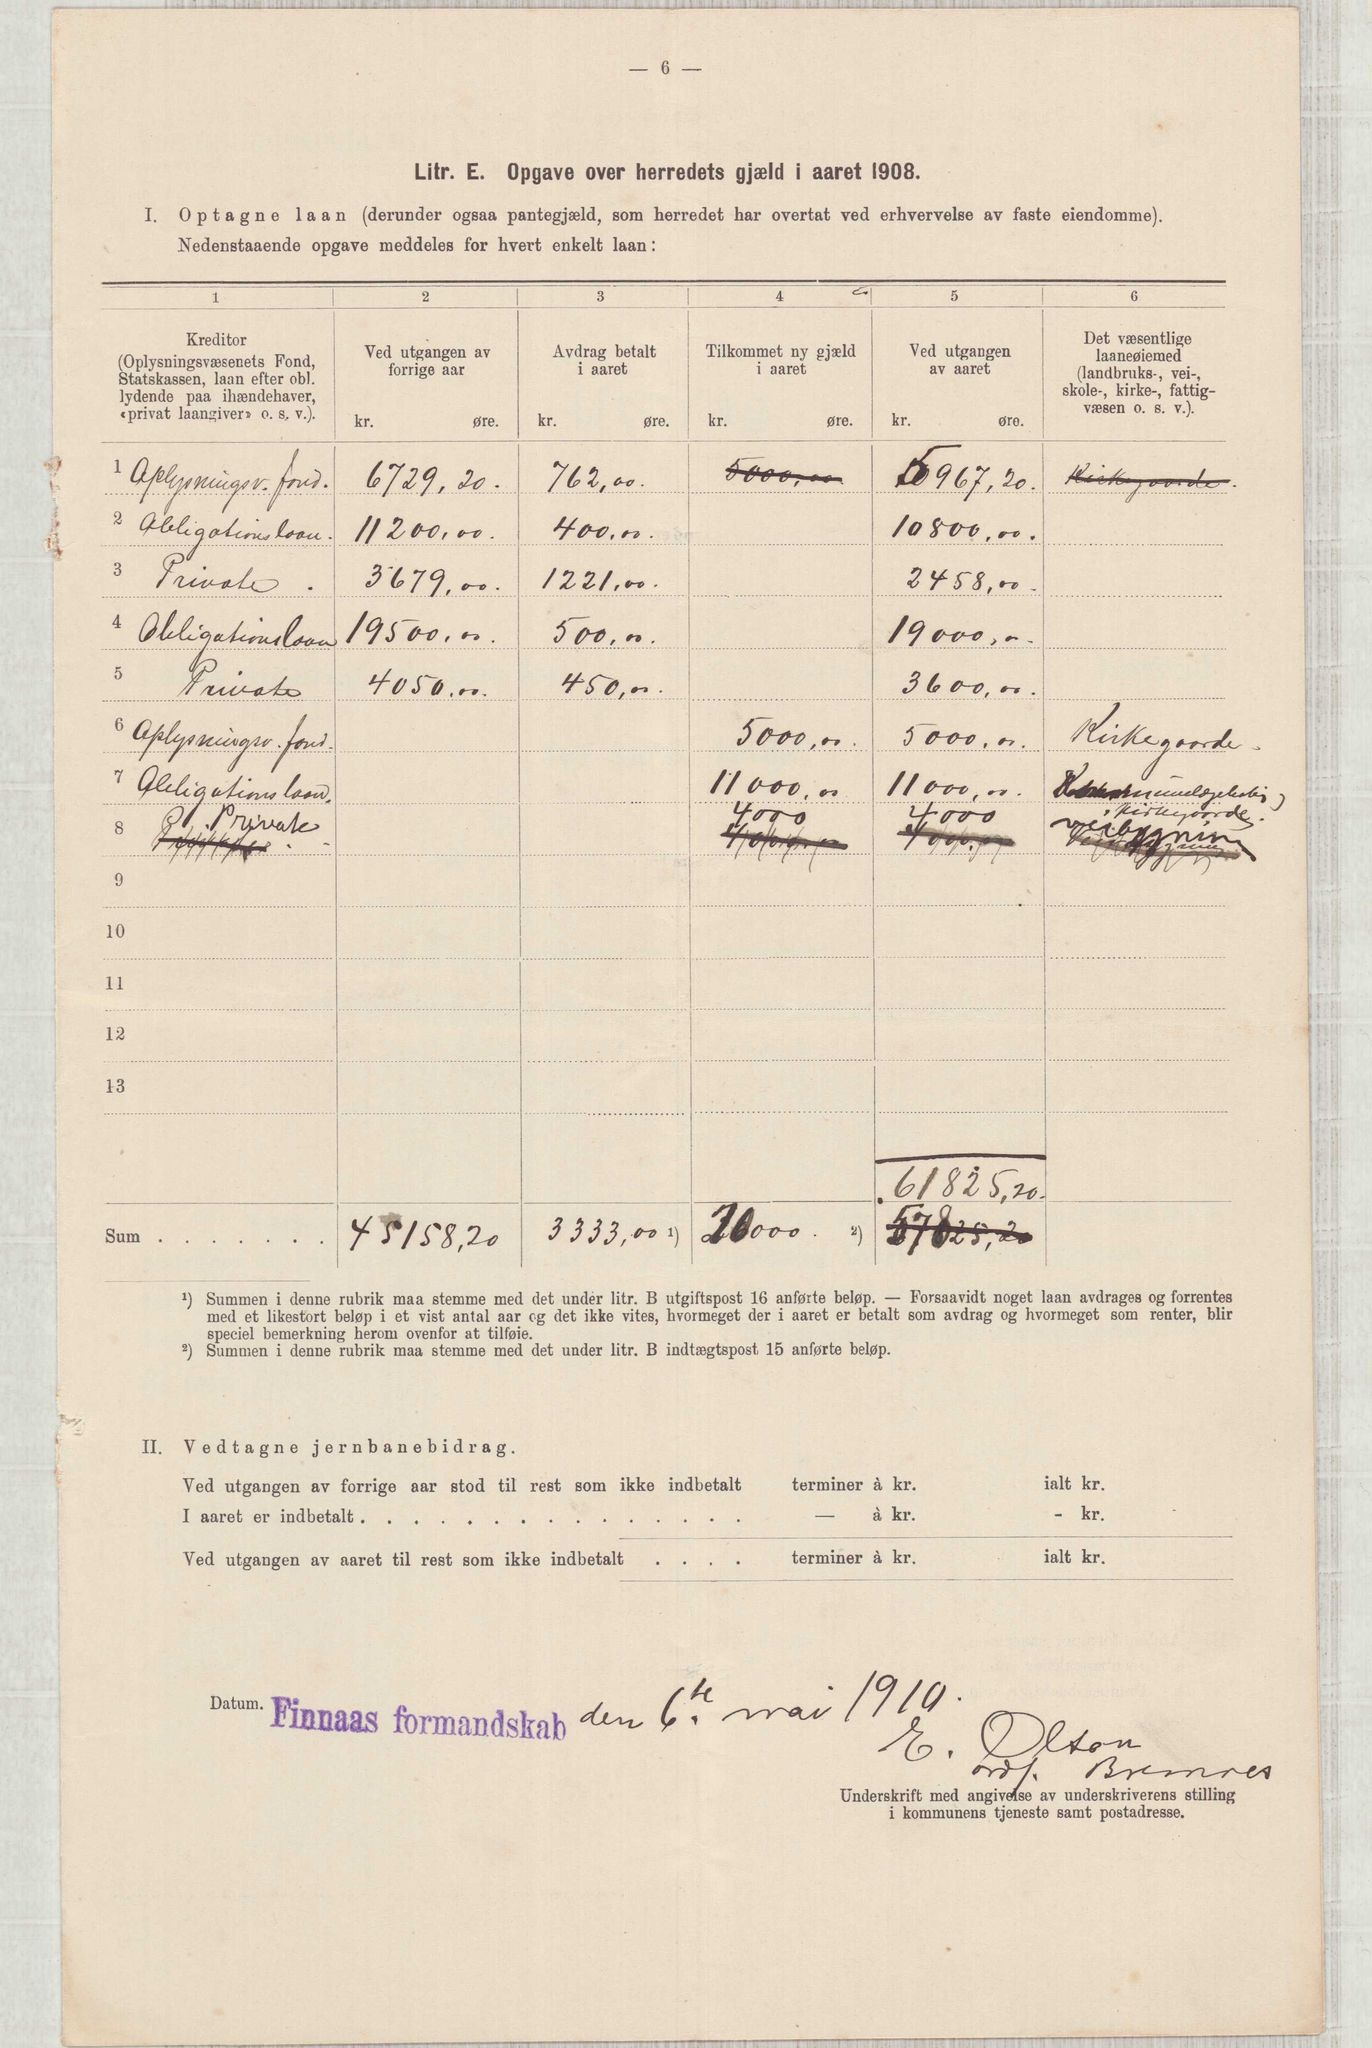 — 6 —
Litr. E. Opgave over herredets gjæld i aaret 1908.
I. Optagne laan (derunder ogsaa pantegjæld, som herredet har overtat ved erhvervelse av faste eiendomme).
Nedenstaaende opgave meddeles for hvert enkelt laan:
1 2 3 4 5 6
Kreditor
(Oplysningsvæsenets Fond,
Statskassen, laan efter obl.
lydende paa ihændehaver,
«privat laangiver» o. s. v.).
Ved utgangen av
forrige aar
kr. øre.
Avdrag betalt
i aaret
kr. øre.
Tilkommet ny gjæld
i aaret
kr. øre.
Ved utgangen
av aaret
kr. øre.
Det væsentlige
laaneøiemed
(landbruks-, vei-,
skole-, kirke-, fattig-
væsen o. s. v.).
1 Oplysningsv. fond. 6729,20. 762,00. 5000,00 5967,20. Kirkegaarde.
2 Obligationslaan. 11200,00. 400,00. 10800,00.
3 Private. 3679,00. 1221,00. 2458,00.
4 Obligationslaan 19500,00. 500,00. 19000,00.
5 Private 4050,00. 450,00. 3600,00.
6 Oplysningsv. fond. 5000,00. 5000,00. Kirkegaarde.
7 Obligationslaan. 11000,00 11000,00.
kirkegaarde.
8 Private 4000 4000 veibygning
9
10
11
12
13
61825,20.
Sum . . . . . . . 45158,20 3333,00 1) 20000. 2) 57825,20
1) Summen i denne rubrik maa stemme med det under litr. B utgiftspost 16 anførte beløp. — Forsaavidt noget laan avdrages og forrentes
med et likestort beløp i et vist antal aar og det ikke vites, hvormeget der i aaret er betalt som avdrag og hvormeget som renter, blir
speciel bemerkning herom ovenfor at tilføie.
2) Summen i denne rubrik maa stemme med det under litr. B indtægtspost 15 anførte beløp.
II. Vedtagne jernbanebidrag.
Ved utgangen av forrige aar stod til rest som ikke indbetalt terminer à kr. ialt kr.
I aaret er indbetalt . . . . . . . . . . . . . . . — à kr. - kr.
Ved utgangen av aaret til rest som ikke indbetalt . . . . terminer à kr. ialt kr.
Datum. Finnaas formandskab den 6te mai 1910.
E. Olson
ordf. Bremnes
Underskrift med angivelse av underskriverens stilling
i kommunens tjeneste samt postadresse.